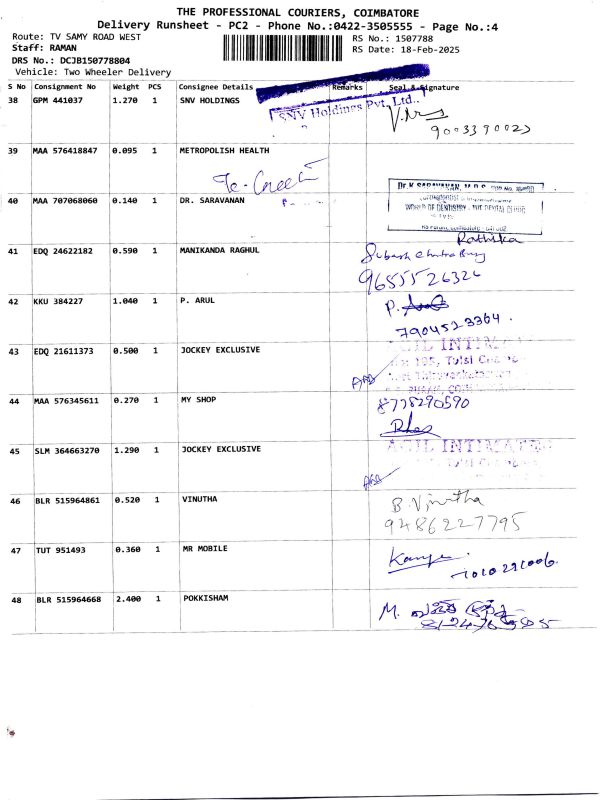 THE PROFESSIONAL COURIERS, COIMBATORE
Delivery Runsheet - PC2 - Phone No.:0422-3505555 - Page No.:4
Route: TV SAMY ROAD WEST
RS No.: 1507788
Staff: RAMAN
RS Date: 18-Feb-2025
DRS No.: DCJB150778804
Vehicle: Two Wheeler Delivery
S No Consignment No Weight PCS Consignee Details Remarks Seal & Signature
38 GPM 441037 1.270 1 SNV HOLDINGS
SNV Holdings Pvt. Ltd.,
9003390023
39 MAA 576418847 0.095 1 METROPOLISH HEALTH
40 MAA 707068060 0.140 1 DR. SARAVANAN
Dr. K. SARAVANAN, M.D.S.
WORLD OF DENTISTRY - THE DENTAL CLINIC
Rathika
41 EDQ 24622182 0.590 1 MANIKANDA RAGHUL
9655526326
42 KKU 384227 1.040 1 P. ARUL
P.
7904523364.
43 EDQ 21611373 0.500 1 JOCKEY EXCLUSIVE
44 MAA 576345611 0.270 1 MY SHOP
8778290590
45 SLM 364663270 1.290 1 JOCKEY EXCLUSIVE
46 BLR 515964861 0.520 1 VINUTHA
B. Vinutha
9486227795
47 TUT 951493 0.360 1 MR MOBILE
7010291006.
48 BLR 515964668 2.400 1 POKKISHAM
M.